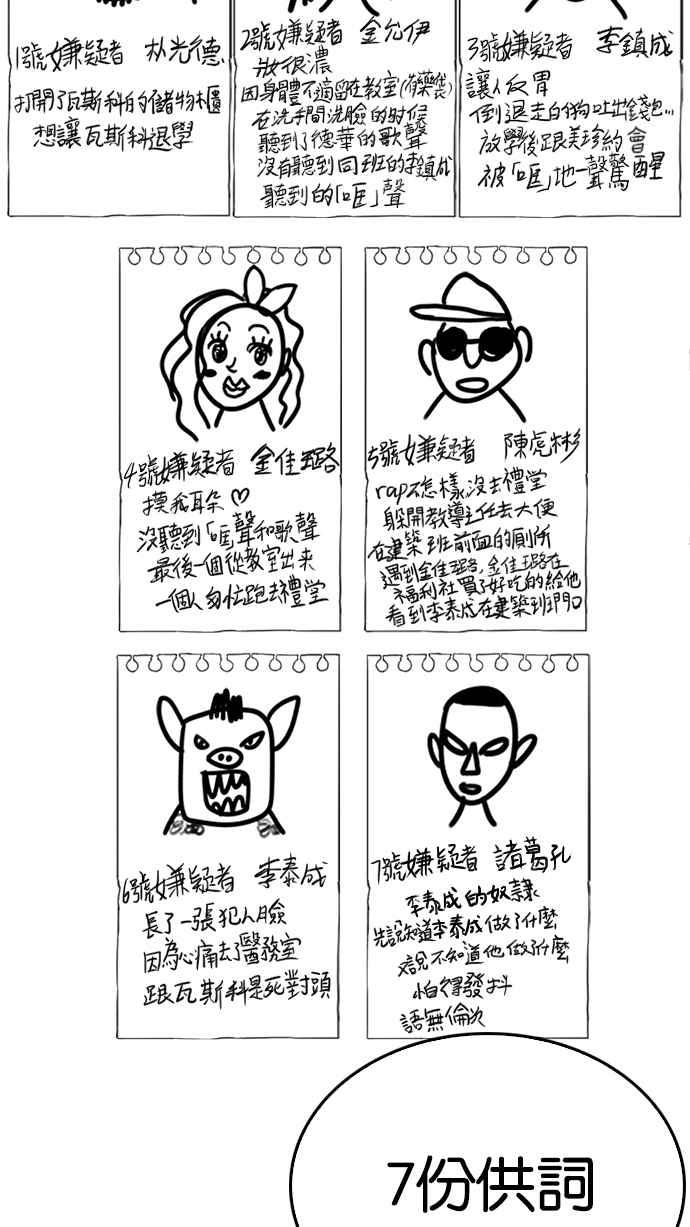 1號嫌疑者 朴光德
打開了瓦斯科的儲物櫃
想讓瓦斯科退學
2號嫌疑者 金允伊
妝很濃
因身體不適留在教室(有藥袋)
在洗手間洗臉的时候
聽到了德華的歌聲
沒有聽到同班的李鎮成
聽到的「哐」聲
3號嫌疑者 李鎮成
讓人反胃
倒退走的狗吐出錢包...
放學後跟美珍約會
被「哐」地一聲驚醒
4號嫌疑者 金佳璐
摸我耳朵♡
沒聽到「哐」聲和歌聲
最後一個從教室出來
一個人匆忙跑去禮堂
5號嫌疑者 陳虎彬
rap不怎樣 沒去禮堂
躲開教導主任去大便
在建築班前面的厠所
遇到金佳璐,金佳璐在
福利社買了好吃的給他
看到李泰成在建築班門口
6號嫌疑者 李泰成
長了一張犯人臉
因為心痛去了醫務室
跟瓦斯科是死對頭
7號嫌疑者 諸葛孔
李泰成的奴隸
先說知道李泰成做了什麼
又說不知道他做了什麼
怕得發抖
語無倫次
7份供詞